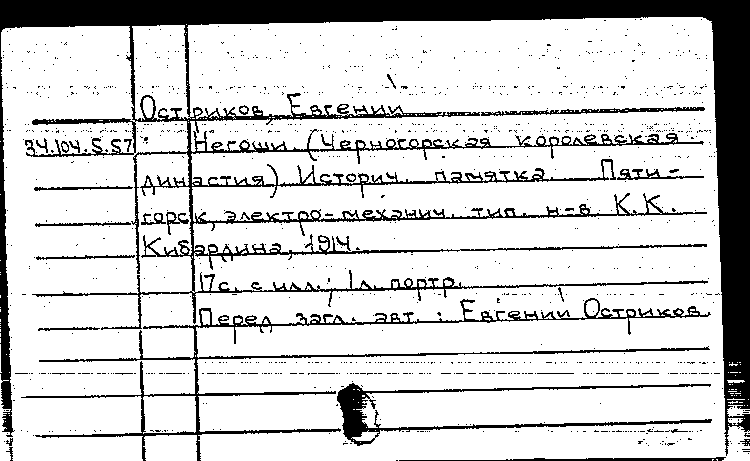 Остриков, Евгений
34.104.5.57 Негоши. (Черногорская королевская
династия). Историч. памятка. Пяти-
горск, электро-механич. тип. н-в К. К.
Кибардина, 1914.
17с. с илл.; 1л. портр.
Перед загл. авт. : Евгений Остриков.